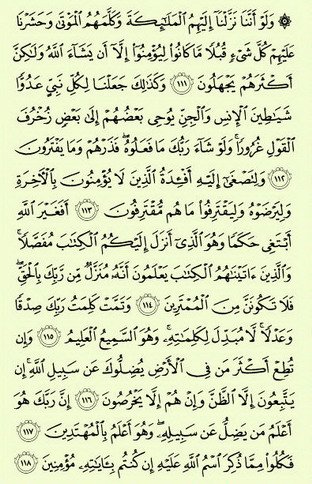 ۞ وَلَوْ أَنَّنَا نَزَّلْنَآ إِلَيْهِمُ ٱلْمَلَـٰٓئِكَةَ وَكَلَّمَهُمُ ٱلْمَوْتَىٰ وَحَشَرْنَا
عَلَيْهِمْ كُلَّ شَىْءٍ قُبُلًا مَّا كَانُوا۟ لِيُؤْمِنُوٓا۟ إِلَّآ أَن يَشَآءَ ٱللَّهُ وَلَـٰكِنَّ
أَكْثَرَهُمْ يَجْهَلُونَ ١١١ وَكَذَٰلِكَ جَعَلْنَا لِكُلِّ نَبِىٍّ عَدُوًّا
شَيَـٰطِينَ ٱلْإِنسِ وَٱلْجِنِّ يُوحِى بَعْضُهُمْ إِلَىٰ بَعْضٍ زُخْرُفَ
ٱلْقَوْلِ غُرُورًا ۚ وَلَوْ شَآءَ رَبُّكَ مَا فَعَلُوهُ ۖ فَذَرْهُمْ وَمَا يَفْتَرُونَ
١١٢ وَلِتَصْغَىٰٓ إِلَيْهِ أَفْـِٔدَةُ ٱلَّذِينَ لَا يُؤْمِنُونَ بِٱلْـَٔاخِرَةِ
وَلِيَرْضَوْهُ وَلِيَقْتَرِفُوا۟ مَا هُم مُّقْتَرِفُونَ ١١٣ أَفَغَيْرَ ٱللَّهِ
أَبْتَغِى حَكَمًا وَهُوَ ٱلَّذِىٓ أَنزَلَ إِلَيْكُمُ ٱلْكِتَـٰبَ مُفَصَّلًا ۚ
وَٱلَّذِينَ ءَاتَيْنَـٰهُمُ ٱلْكِتَـٰبَ يَعْلَمُونَ أَنَّهُۥ مُنَزَّلٌ مِّن رَّبِّكَ بِٱلْحَقِّ ۖ
فَلَا تَكُونَنَّ مِنَ ٱلْمُمْتَرِينَ ١١٤ وَتَمَّتْ كَلِمَتُ رَبِّكَ صِدْقًا
وَعَدْلًا ۚ لَّا مُبَدِّلَ لِكَلِمَـٰتِهِۦ ۚ وَهُوَ ٱلسَّمِيعُ ٱلْعَلِيمُ ١١٥ وَإِن
تُطِعْ أَكْثَرَ مَن فِى ٱلْأَرْضِ يُضِلُّوكَ عَن سَبِيلِ ٱللَّهِ ۚ إِن
يَتَّبِعُونَ إِلَّا ٱلظَّنَّ وَإِنْ هُمْ إِلَّا يَخْرُصُونَ ١١٦ إِنَّ رَبَّكَ هُوَ
أَعْلَمُ مَن يَضِلُّ عَن سَبِيلِهِۦ ۖ وَهُوَ أَعْلَمُ بِٱلْمُهْتَدِينَ
١١٧ فَكُلُوا۟ مِمَّا ذُكِرَ ٱسْمُ ٱللَّهِ عَلَيْهِ إِن كُنتُم بِـَٔايَـٰتِهِۦ مُؤْمِنِينَ ١١٨